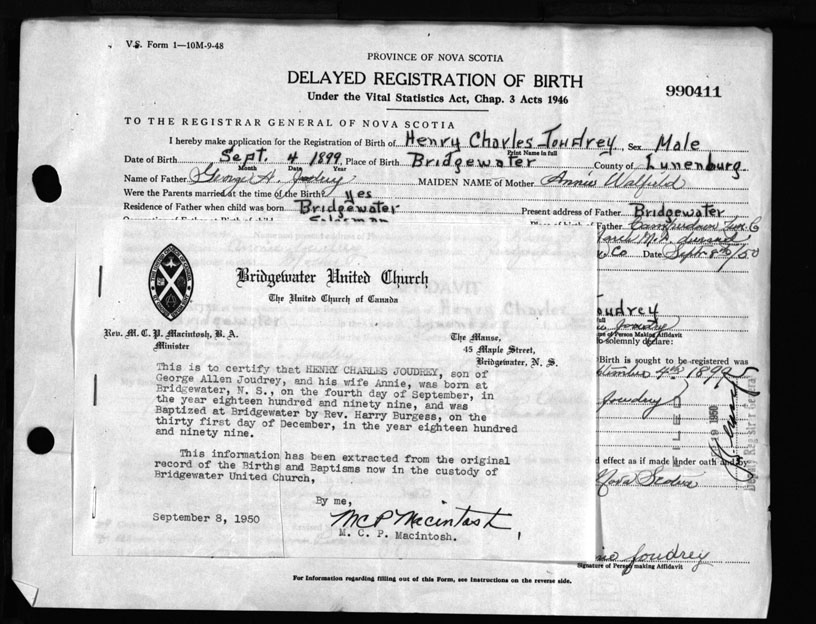 V.S. Form 1—10M-9-48
PROVINCE OF NOVA SCOTIA
DELAYED REGISTRATION OF BIRTH
990411
Under the Vital Statistics Act, Chap. 3 Acts 1946
TO THE REGISTRAR GENERAL OF NOVA SCOTIA
I hereby make application for the Registration of Birth of Henry Charles Joudrey, Sex Male
Print Name in full
Date of Birth Sept. 4 1899, Place of Birth Bridgewater County of Lunenburg
Month Date Year
Name of Father George A. Joudrey MAIDEN NAME of Mother Annie Walfield
Were the Parents married at the time of the Birth? yes
Residence of Father when child was born Bridgewater Present address of Father Bridgewater
Salesman Father
Co Date Sept 8th/50
Bridgewater United Church
The United Church of Canada
Rev. M. C. P. Macintosh, B. A.
Minister
The Manse,
45 Maple Street,
Bridgewater, N. S.
This is to certify that HENRY CHARLES JOUDREY, son of
George Allen Joudrey, and his wife Annie, was born at
Bridgewater, N. S., on the fourth day of September, in
the year eighteen hundred and ninety nine, and was
Baptized at Bridgewater by Rev. Harry Burgess, on the
thirty first day of December, in the year eighteen hundred
and ninety nine.
This information has been extracted from the original
record of the Births and Baptisms now in the custody of
Bridgewater United Church,
By me,
September 8, 1950
M C P Macintosh
M. C. P. Macintosh.
Joudrey
Joudry
of Person Making Affidavit
solemnly declare:
Birth is sought to be registered was
4th 1899
Joudrey
FILED
19 1950
Deputy Registrar General
effect as if made under oath and by
Nova Scotia
Joudrey
Signature of Person making Affidavit
For Information regarding filling out of this Form, see Instructions on the reverse side.